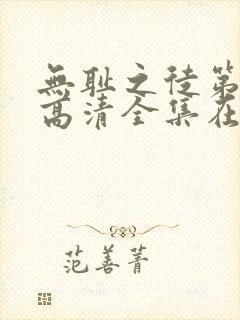 無耻之徒第
高清全集在
范善菁